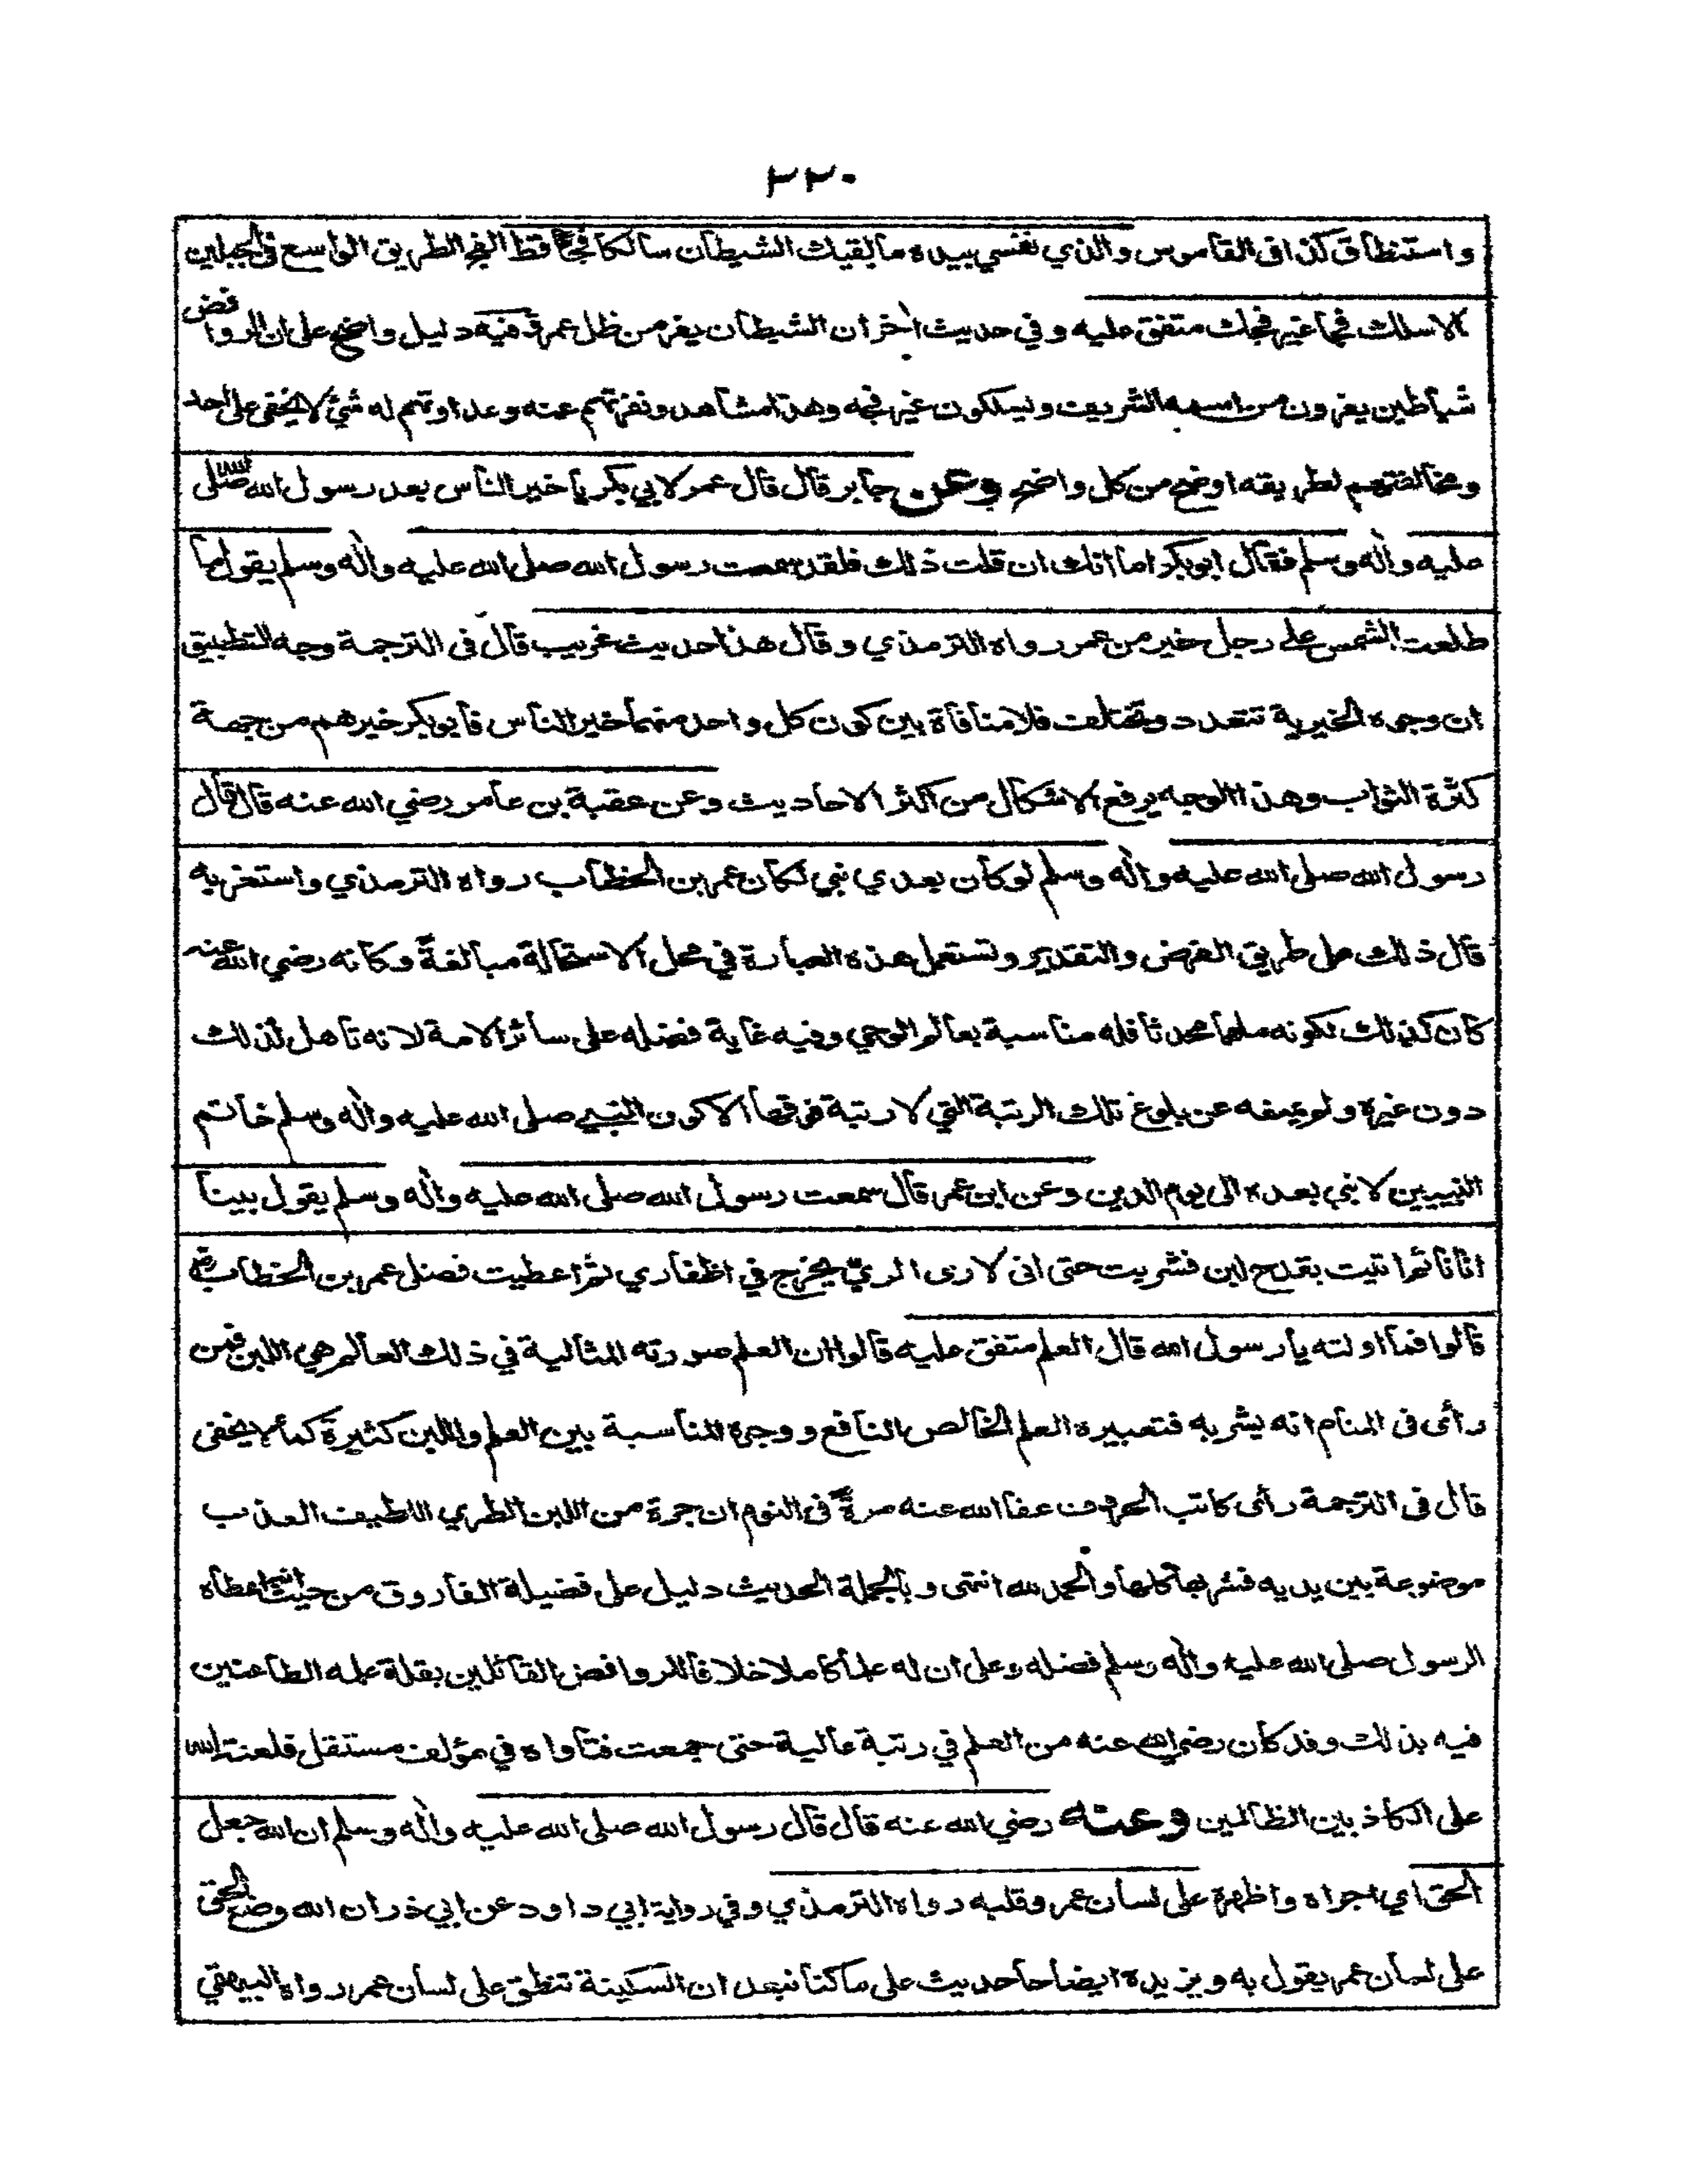 ٢٢٠
واستنطاق كذا في القاموس والذي نفسي بيده ما لقيك الشيطان سالكا فجا قط الفج الطريق الواسع في الجبلين
الا سلك فجا غير فجك متفق عليه وفي حديث اخر ان الشيطان يفر من ظل عمر فيه دليل واضح على ان الروافض
شياطين يفرون من اسمه الشريف ويسلكون غير فجه وهذا مشاهد ونفرتهم عنه وعداوتهم له شئ لا يخفى على احد
ومخالفتهم لطريقه اوضح من كل واضح وعن جابر قال قال عمر لابي بكر يا خير الناس بعد رسول الله صلى الله
عليه واله وسلم فقال ابو بكر اما انك ان قلت ذلك فلقد سمعت رسول الله صلى الله عليه واله وسلم يقول ما
طلعت الشمس على رجل خير من عمر رواه الترمذي وقال هذا حديث غريب قال في الترجمة وجه التطبيق
ان وجوه الخيرية تتعدد وتختلف فلا منافاة بين كون كل واحد منهما خير الناس فابو بكر خيرهم من جهة
كثرة الثواب وهذا الوجه يرفع الاشكال من اكثر الاحاديث وعن عقبة بن عامر رضي الله عنه قال قال
رسول الله صلى الله عليه واله وسلم لو كان بعدي نبي لكان عمر بن الخطاب رواه الترمذي واستغربه
قال ذلك على طريق الفرض والتقدير وتستعمل هذه العبارة في محل الاستحالة مبالغة وكانه رضي الله عنه
كان كذلك لكونه ملهما محدثا فله مناسبة بعالم الوحي وفيه غاية فضله على سائر الامة لانه تاهل لذلك
دون غيره ولم يمنعه عن بلوغ تلك الرتبة التي لا رتبة فوقها الا كون النبي صلى الله عليه واله وسلم خاتم
النبيين لا نبي بعده الى يوم الدين وعن ابن عمر قال سمعت رسول الله صلى الله عليه واله وسلم يقول بينا
انا نائم اتيت بقدح لبن فشربت حتى انى لارى الري يخرج في اظفاري ثم اعطيت فضلى عمر بن الخطاب رض
قالوا فما اولته يا رسول الله قال العلم متفق عليه قالوا ان العلم صورته المثالية في ذلك العالم هي اللبن فمن
رأى في المنام انه يشربه فتعبيره العلم الخالص النافع ووجوه المناسبة بين العلم واللبن كثيرة كما لا يخفى
قال في الترجمة رأى كاتب الحروف عفا الله عنه مرة في النوم ان جرة من اللبن الطري اللطيف العذب
موضوعة بين يديه فشربها كلها والحمد لله انتهى وبالجملة الحديث دليل على فضيلة الفاروق من حيث انه اعطاه
الرسول صلى الله عليه واله وسلم فضله وعلى ان له علما كاملا خلافا للروافض القائلين بقلة علمه الطاعنين
فيه بذلك وقد كان رضي الله عنه من العلم في رتبة عالية حتى جمعت فتاواه في مؤلف مستقل فلعنة الله
على الكاذبين الظالمين وعنه رضي الله عنه قال قال رسول الله صلى الله عليه واله وسلم ان الله جعل
الحق اي اجراه واظهره على لسان عمر وقلبه رواه الترمذي وفي رواية ابي داود عن ابي ذر ان الله وضع الحق
على لسان عمر يقول به ويزيده ايضاحا حديث على ما كنا نبعد ان السكينة تنطق على لسان عمر رواه البيهقي